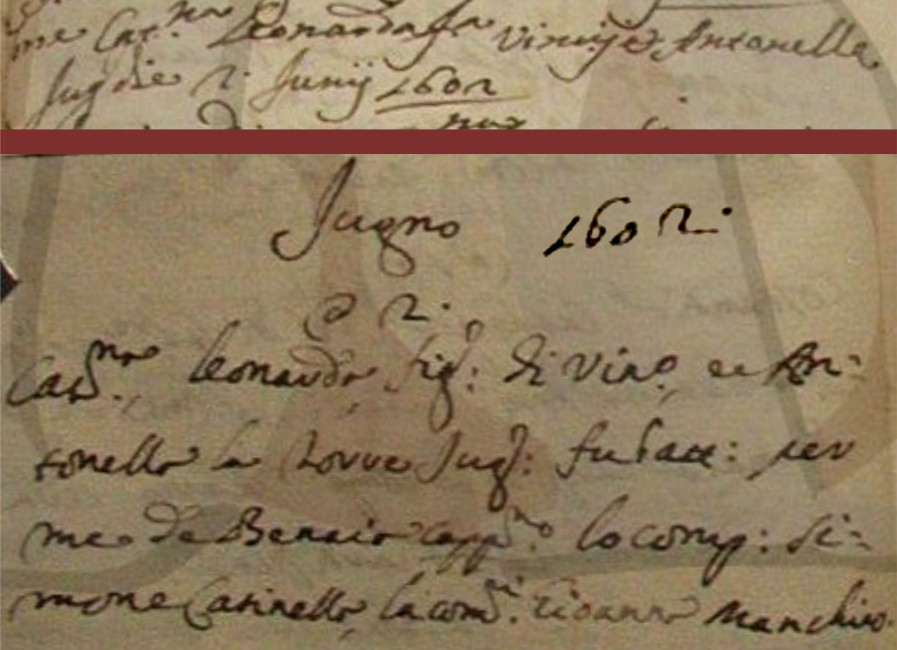 me Cat.na Leonarda fa Vincije Antonella
Jug die 2 Junij 1602
Jugno 1602.
@ 2.
Cat.na leonarda fig: di Vinc.o et An:
tonella la Torre Jug: fu batt: per
me de Benaio capp.no lo comp: Si:
mone Catinella la com.ri Gioanna Manchiro.